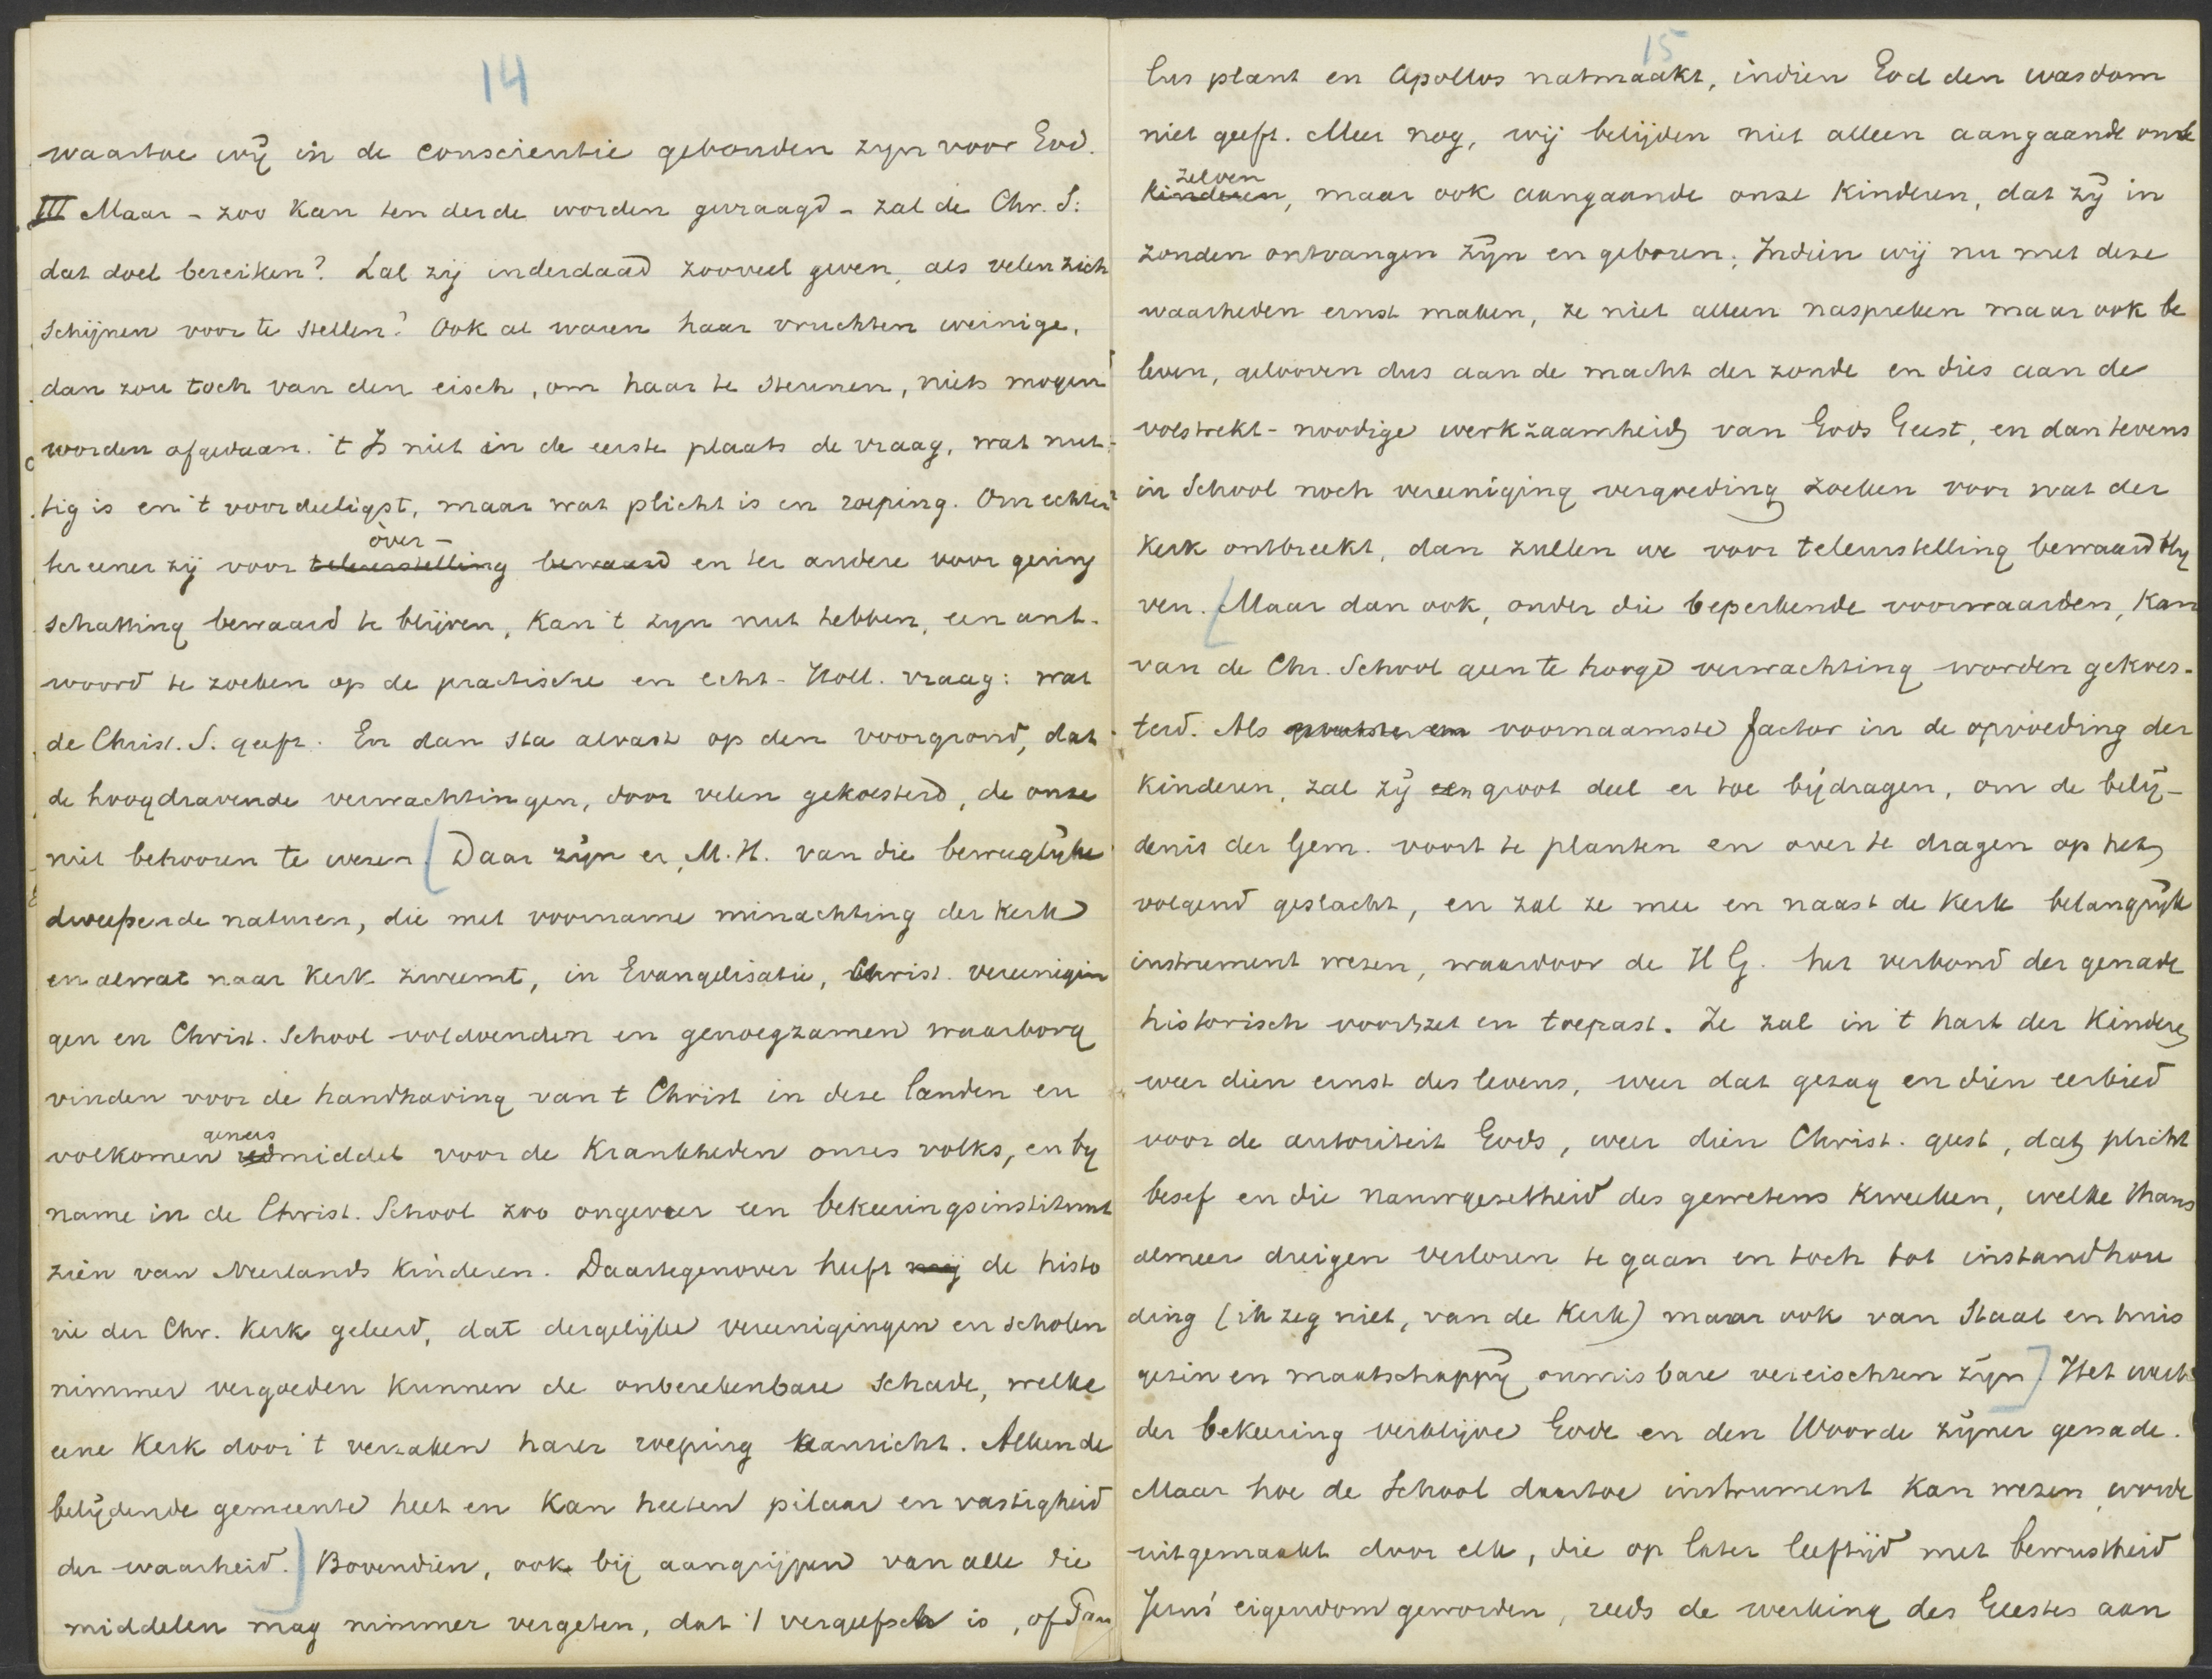 14
waartoe wij in de conscientie gebonden zijn voor God.
III Maar - zoo kan ten derde worden gevraagd - zal de Chr. S:
dat doel bereiken? Zal zij inderdaad zooveel geven, als velen zich
schijnen voor te stellen? Ook al waren haar vruchten weinige,
dan zou toch van den eisch, om haar te steunen, niets mogen
worden afgedaan. 't Is niet in de eerste plaats de vraag, wat nut-
tig is en 't voordeeligst, maar wat plicht is en roeping. Om echter
over-
ter eener zij voor teleurstelling bewaard en ter andere voor gering
schatting bewaard te blijven, kan 't zijn nut hebben, een ant-
woord te zoeken op de practische en echt-Holl. vraag: wat
de Christ. S. geeft. En dan sta alvast op den voorgrond, dat
de hoogdravende verwachtingen, door velen gekoesterd, de onze
niet behooren te wezen. [Daar zijn er, M.H. van die bewegelijke
dweepende naturen, die met voorname minachting der kerk
en alwat naar kerk zweemt, in Evangelisatie, Christ. vereenigin
gen en Christ. School voldoenden en genoegzamen waarborg
vinden voor de handhaving van 't Christ in deze landen en
genees
volkomen redmiddel voor de krankheden onzes volks, en bij
name in de Christ. School zoo ongeveer een bekeeringsinstituut
zien van Neerlands kinderen. Daartegenover heeft mij de histo
rie der Chr. Kerk geleerd, dat dergelijke vereenigingen en scholen
nimmer vergoeden kunnen de onberekenbare schade, welke
eene kerk door 't verzaken harer roeping aanricht. Alleen de
belijdende gemeente heet en kan heeten pilaar en vastigheid
der waarheid.] Bovendien, ook bij aangrijpen van alle die
middelen mag nimmer vergeten, dat 't vergeefsch is, of Pau
15
lus plant en Apollos natmaakt, indien God den wasdom
niet geeft. Meer nog, wij belijden niet alleen aangaande onze
zelven
kinderen, maar ook aangaande onze kinderen, dat zij in
zonden ontvangen zijn en geboren. Indien wij nu met deze
waarheden ernst maken, ze niet alleen naspreken maar ook be
leven, gelooven dus aan de macht der zonde en dies aan de
volstrekt-noodige werkzaamheid van Gods Geest, en dan tevens
in School noch vereeniging vergoeding zoeken voor wat der
Kerk ontbreekt, dan zullen we voor teleurstelling bewaard blij
ven. [Maar dan ook, onder die beperkende voorwaarden, kan
van de Chr. School geen te hooge verwachting worden gekoes-
terd. Als voornaamste factor in de opvoeding der
kinderen, zal zij een groot deel er toe bijdragen, om de belij-
denis der Gem. voort te planten en over te dragen op het
volgend geslacht, en zal ze mee en naast de Kerk belangrijk
instrument wezen, waardoor de H G. het verbond der genade
historisch voortzet en toepast. Ze zal in 't hart der kindere
weer dien ernst des levens, weer dat gezag en dien eerbied
voor de autoriteit Gods, weer dien Christ. geest, dat plicht
besef en die nauwgezetheid des gewetens kweeken, welke thans
almeer dreigen verloren te gaan en toch tot instandhou
ding (ik zeg niet, van de Kerk) maar ook van Staat en huis
gezin en maatschappij onmisbare vereischten zijn] Het werk
der bekeering verblijve Gode en den Woorde zijner genade.
Maar hoe de School daartoe instrument kan wezen, worde
uitgemaakt door elk, die op later leeftijd met bewustheid
Jezus' eigendom geworden, reeds de werking des Geestes aan